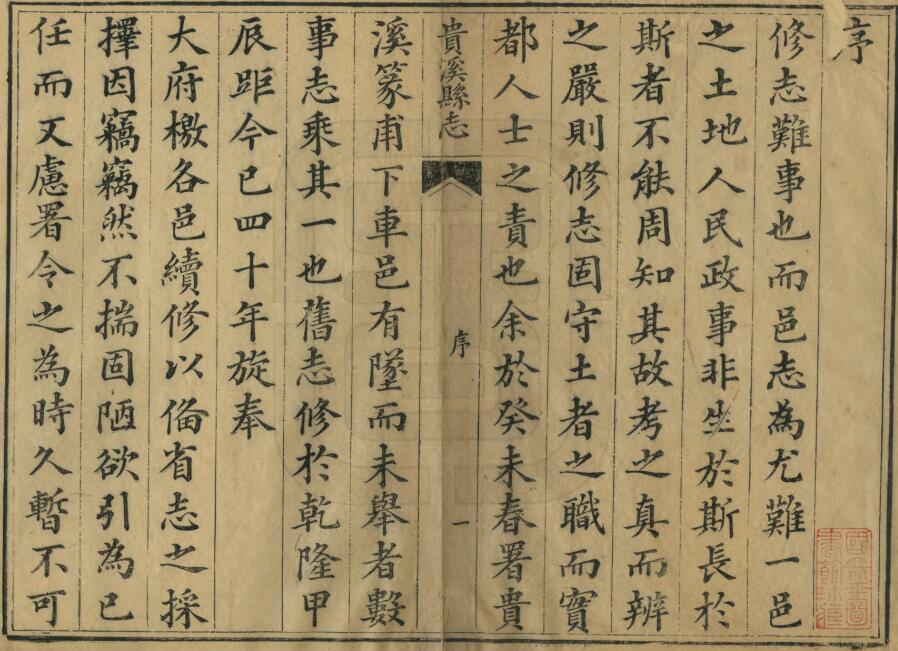 序
修志難事也而邑志為尤難一邑
之土地人民政事非生於斯長於
斯者不能周知其故考之真而辨
之嚴則修志固守土者之職而實
都人士之責也余於癸未春署貴
貴溪縣志
序
一
溪篆甫下車邑有墜而未舉者數
事志乘其一也舊志修於乾隆甲
辰距今已四十年旋奉
大府檄各邑續修以俻省志之採
擇因竊竊然不揣固陋欲引為已
任而又慮署令之為時久暫不可